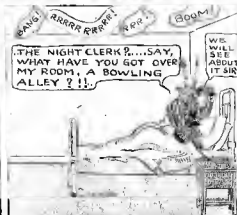 BANG!
RRRRRRRRRR!
RRR!
BOOM!
THE NIGHT CLERK?....SAY,
WHAT HAVE YOU GOT OVER
MY ROOM, A BOWLING
ALLEY ? !!..
WE
WILL
SEE
ABOUT
IT SIR